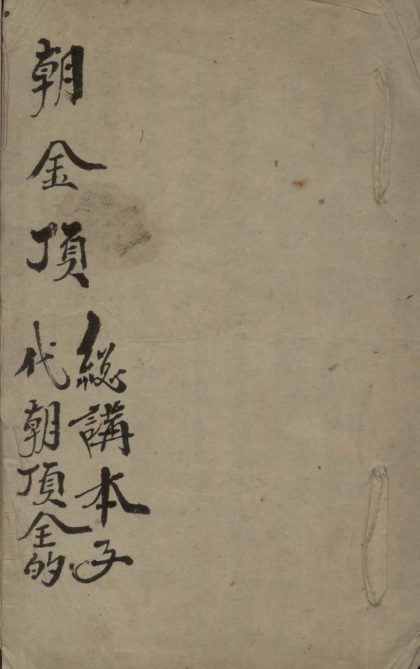 朝金頂
総講本子
代朝頂全的